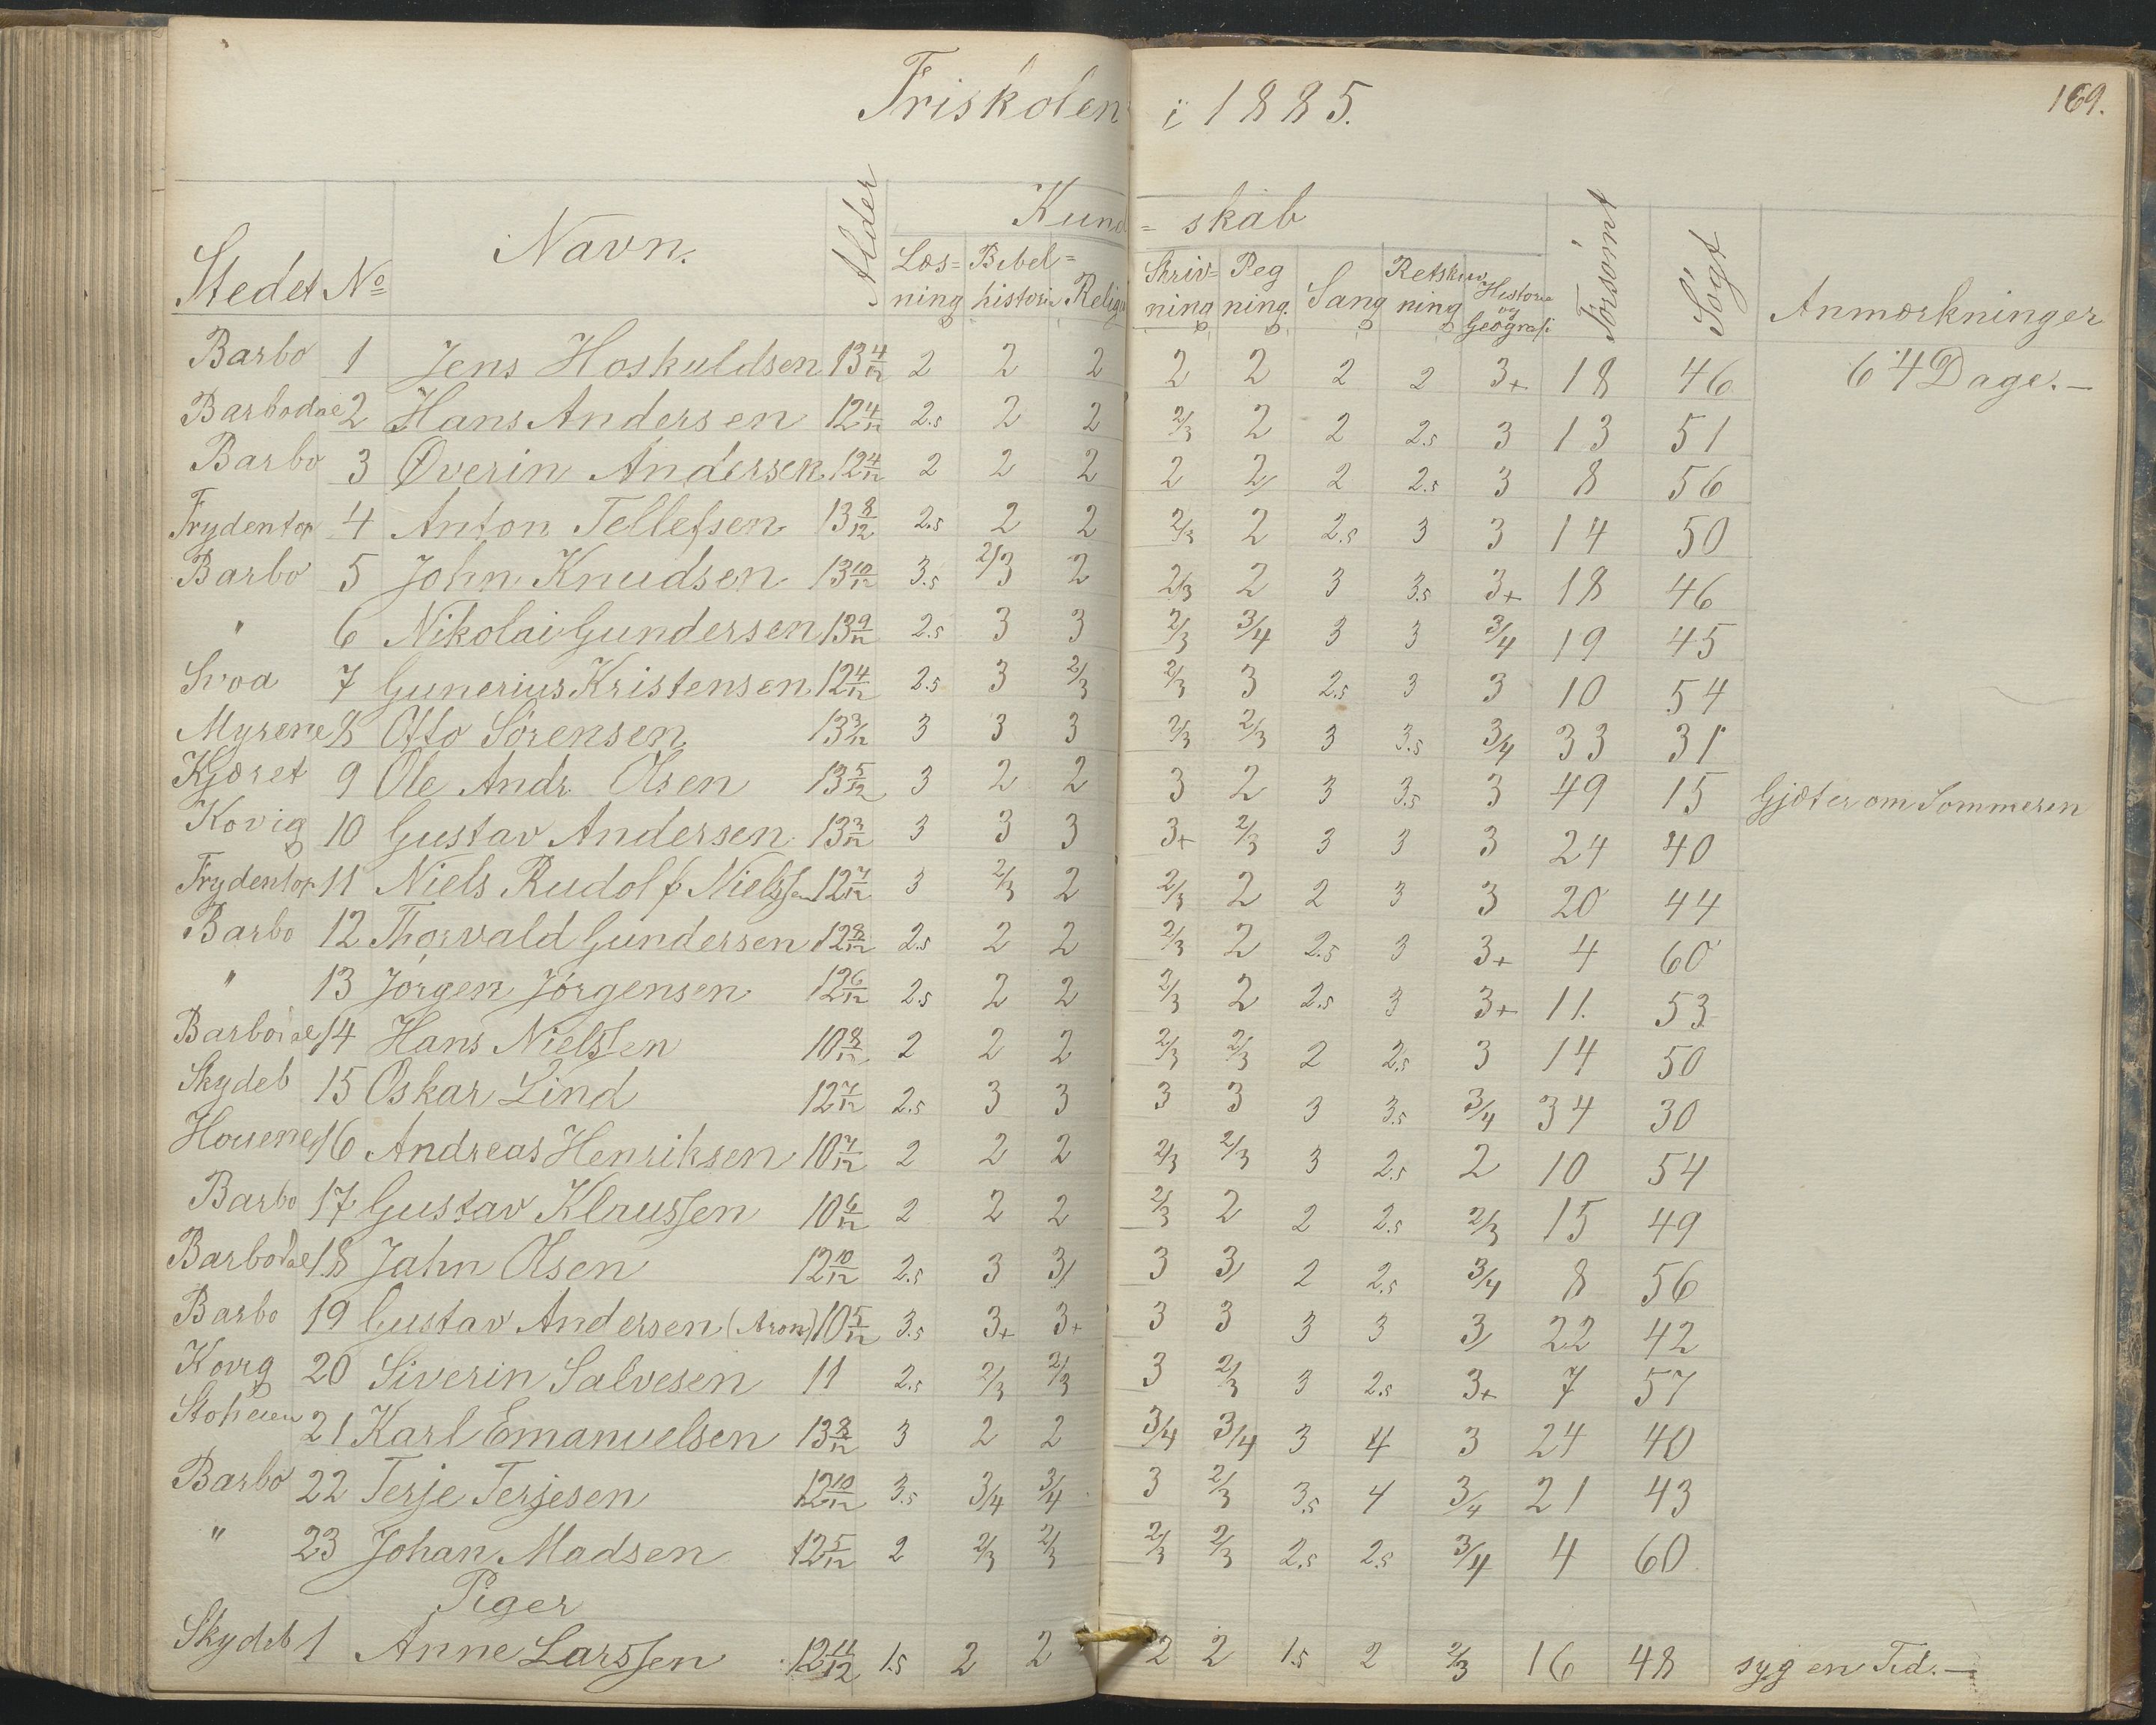 Friskolen i 1885.
169.
Stedet No Navn. Alder Kund=skab Forsømt Søgt Anmærkninger
Læs=ning Bibel=historie Relig Skriv=ning Regning. Sang Retskrivning Historie og Geografi
Barbo 1 Jens Hoskuldsen 13 4/12 2 2 2 2 2 2 2 3+ 18 46 64 Dage.—
Barbodal 2 Hans Andersen 12 4/12 2.5 2 2 2/3 2 2 2.5 3 13 51
Barbo 3 Øverin Andersen 12 4/12 2 2 2 2 2 2 2.5 3 8 56
Frydentop 4 Anton Tellefsen 13 8/12 2.5 2 2 2/3 2 2.5 3 3 14 50
Barbo 5 John Knudsen 13 10/12 3.5 2/3 2 2/3 2 3 3.5 3+ 18 46
" 6 Nikolai Gundersen 13 9/12 2.5 3 3 2/3 3/4 3 3 3/4 19 45
Svoa 7 Gunerius Kristensen 12 4/12 2.5 3 2/3 2/3 3 2.5 3 3 10 54
Myrene 8 Otto Sörensen 13 3/12 3 3 3 2/3 2/3 3 3.5 3/4 33 31
Kjæret 9 Ole Andr Olsen 13 5/12 3 2 2 3 2 3 3.5 3 49 15 Gjæter om Sommeren
Kovig 10 Gustav Andersen 13 3/12 3 3 3 3+ 2/3 3 3 3 24 40
Frydentop 11 Niels Rudolf Nielssen 12 7/12 3 2/3 2 2/3 2 2 3 3 20 44
Barbo 12 Thorvald Gundersen 12 8/12 2.5 2 2 2/3 2 2.5 3 3+ 4 60
" 13 Jörgen Jörgensen 12 6/12 2.5 2 2 2/3 2 2.5 3 3+ 11. 53
Barbodal 14 Hans Nielssen 10 8/12 2 2 2 2/3 2/3 2 2.5 3 14 50
Skydeb 15 Oskar Lind 12 7/12 2.5 3 3 3 3 3 3.5 3/4 34 30
Houene 16 Andreas Henriksen 10 7/12 2 2 2 2/3 2/3 3 2.5 2 10 54
Barbo 17 Gustav Klaussen 10 6/12 2 2 2 2/3 2 2 2.5 2/3 15 49
Barbodal 18 Jahn Olsen 12 10/12 2.5 3 3 3 3 2 2.5 3/4 8 56
Barbo 19 Gustav Andersen (Aron) 10 5/12 3.5 3+ 3+ 3 3 3 3 3 22 42
Kovig 20 Siverin Salvesen 11 2.5 2/3 2/3 3 2/3 3 2.5 3+ 7 57
21 Karl Emanuelsen 13 8/12 3 2 2 3/4 3/4 3 4 3 24 40
Barbo 22 Terje Terjesen 12 10/12 3.5 3/4 3/4 3 2/3 3.5 4 3/4 21 43
" 23 Johan Madsen 12 5/12 2 2/3 2/3 2/3 2/3 2.5 2.5 3/4 4 60
Piger
Skydeb 1 Anne Larssen 12 11/12 1.5 2 2 2 2 1.5 2 2/3 16 48 syg en Tid.—